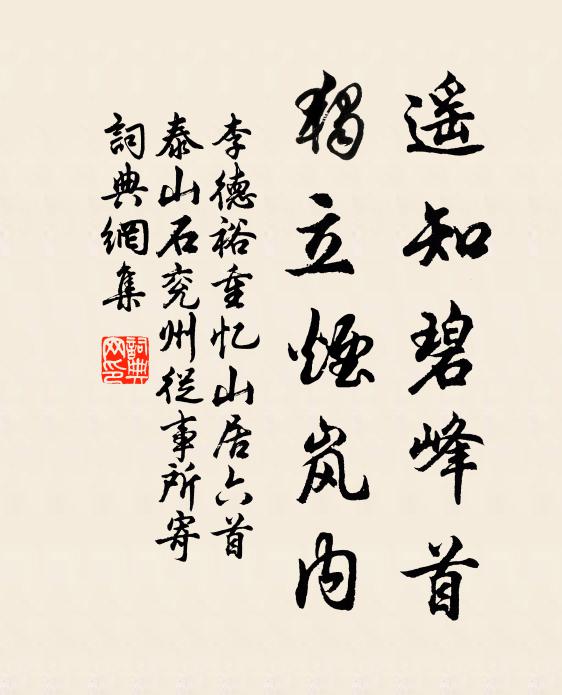 遥知碧峰首
獨立煙岚内
李德裕重忆山居六首
泰山石兖州從事所寄
詞典網集
詞典
网印